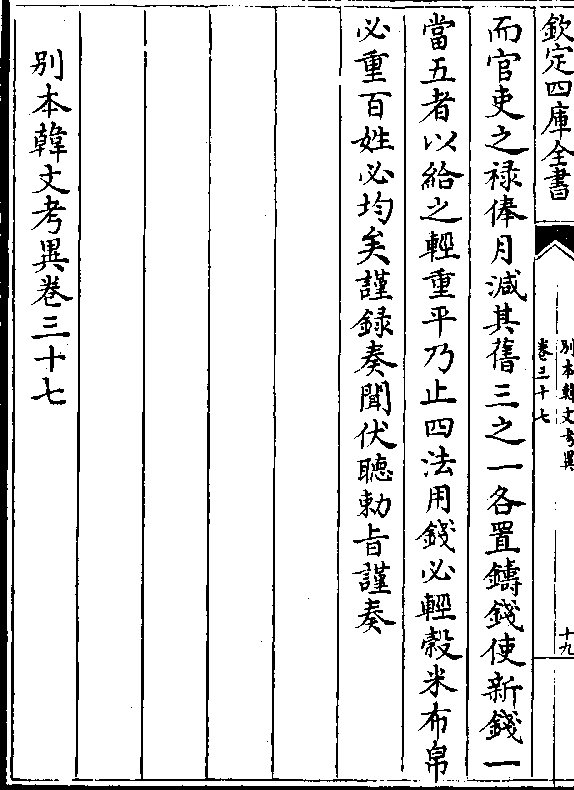 欽定四庫全書
別本韓文考異
卷三十七
十九
而官吏之禄俸月減其舊三之一各置鑄錢使新錢一
當五者以給之輕重平乃止四法用錢必輕榖米布帛
必重百姓必均矣謹録奏聞伏聽勅旨謹奏
別本韓文考異卷三十七